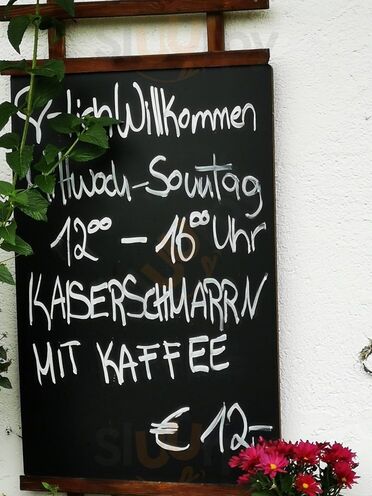 Willkommen
Mittwoch-Sonntag
12⁰⁰ - 16⁰⁰ Uhr
KAISERSCHMARRN
MIT KAFFEE
€ 12,-